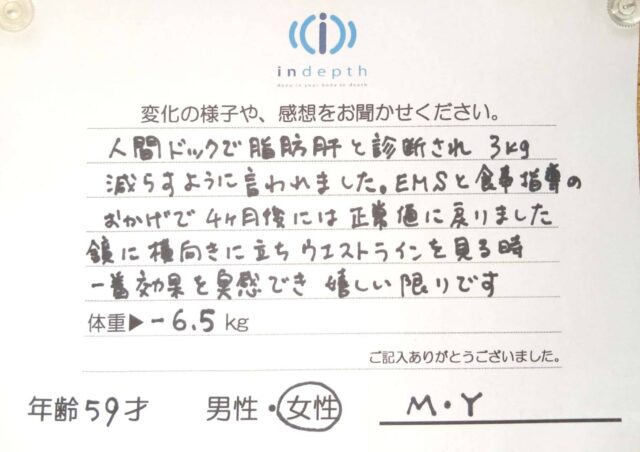 indepth
変化の様子や、感想をお聞かせください。
人間ドックで脂肪肝と診断され 3kg
減らすように言われました。EMSと食事指導の
おかげで4ヶ月後には正常値に戻りました
鏡に横向きに立ちウエストラインを見る時
一番効果を実感でき 嬉しい限りです
体重▶-6.5kg
ご記入ありがとうございました。
年齢59才 男性・女性 M・Y